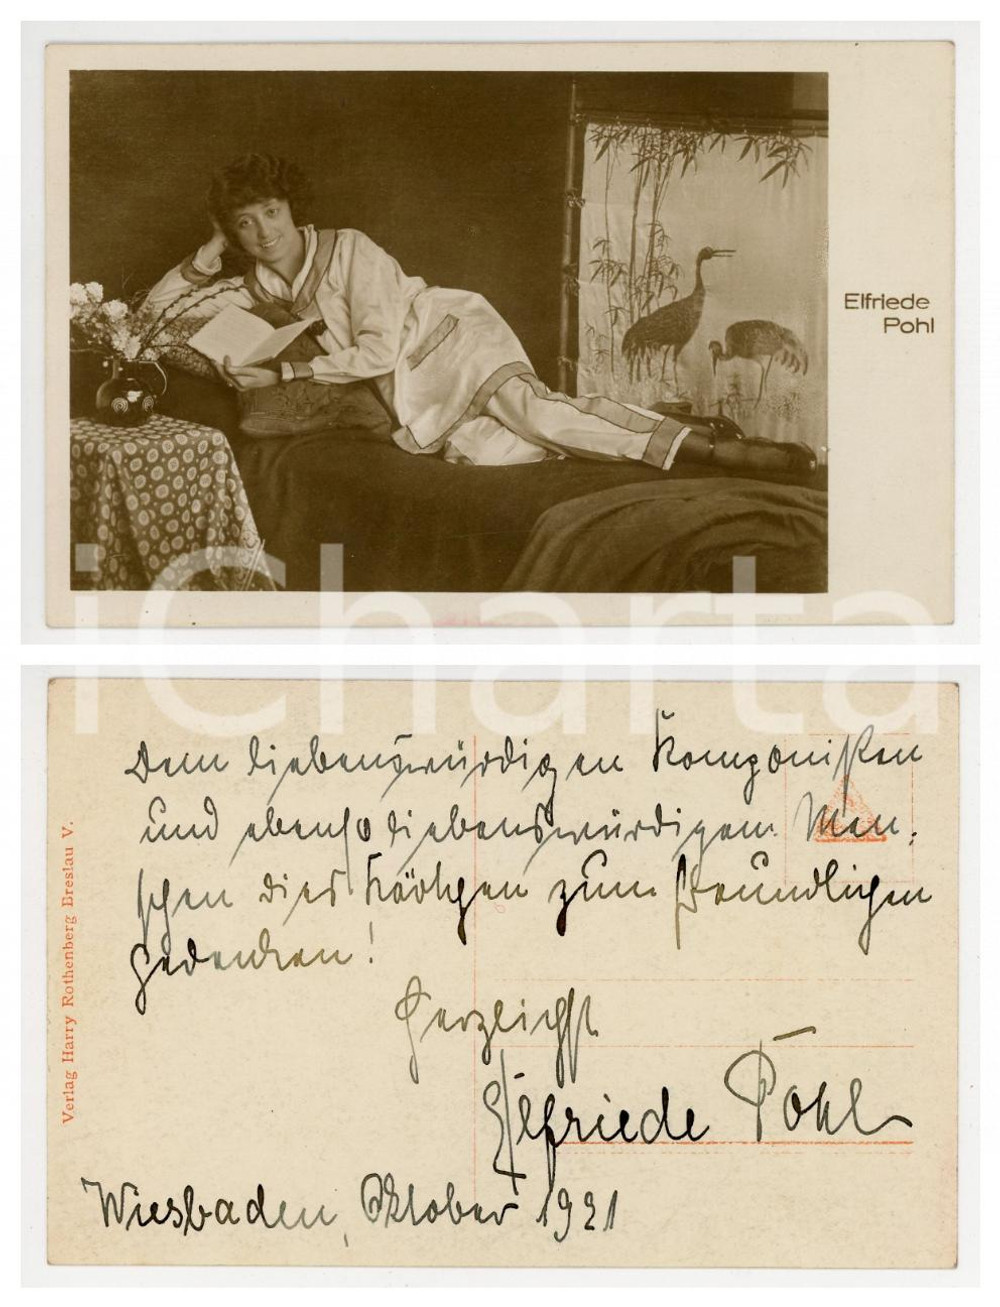 Elfriede
Pohl
iCharta
Verlag Harry Rothenberg Breslau V.
Dem liebenswürdigen Komponisten
und ebenso liebenswürdigem Men-
schen dies Kärtchen zum freundlichen
Gedenken!
Herzlichst
Elfriede Pohl
Wiesbaden, Oktober 1921